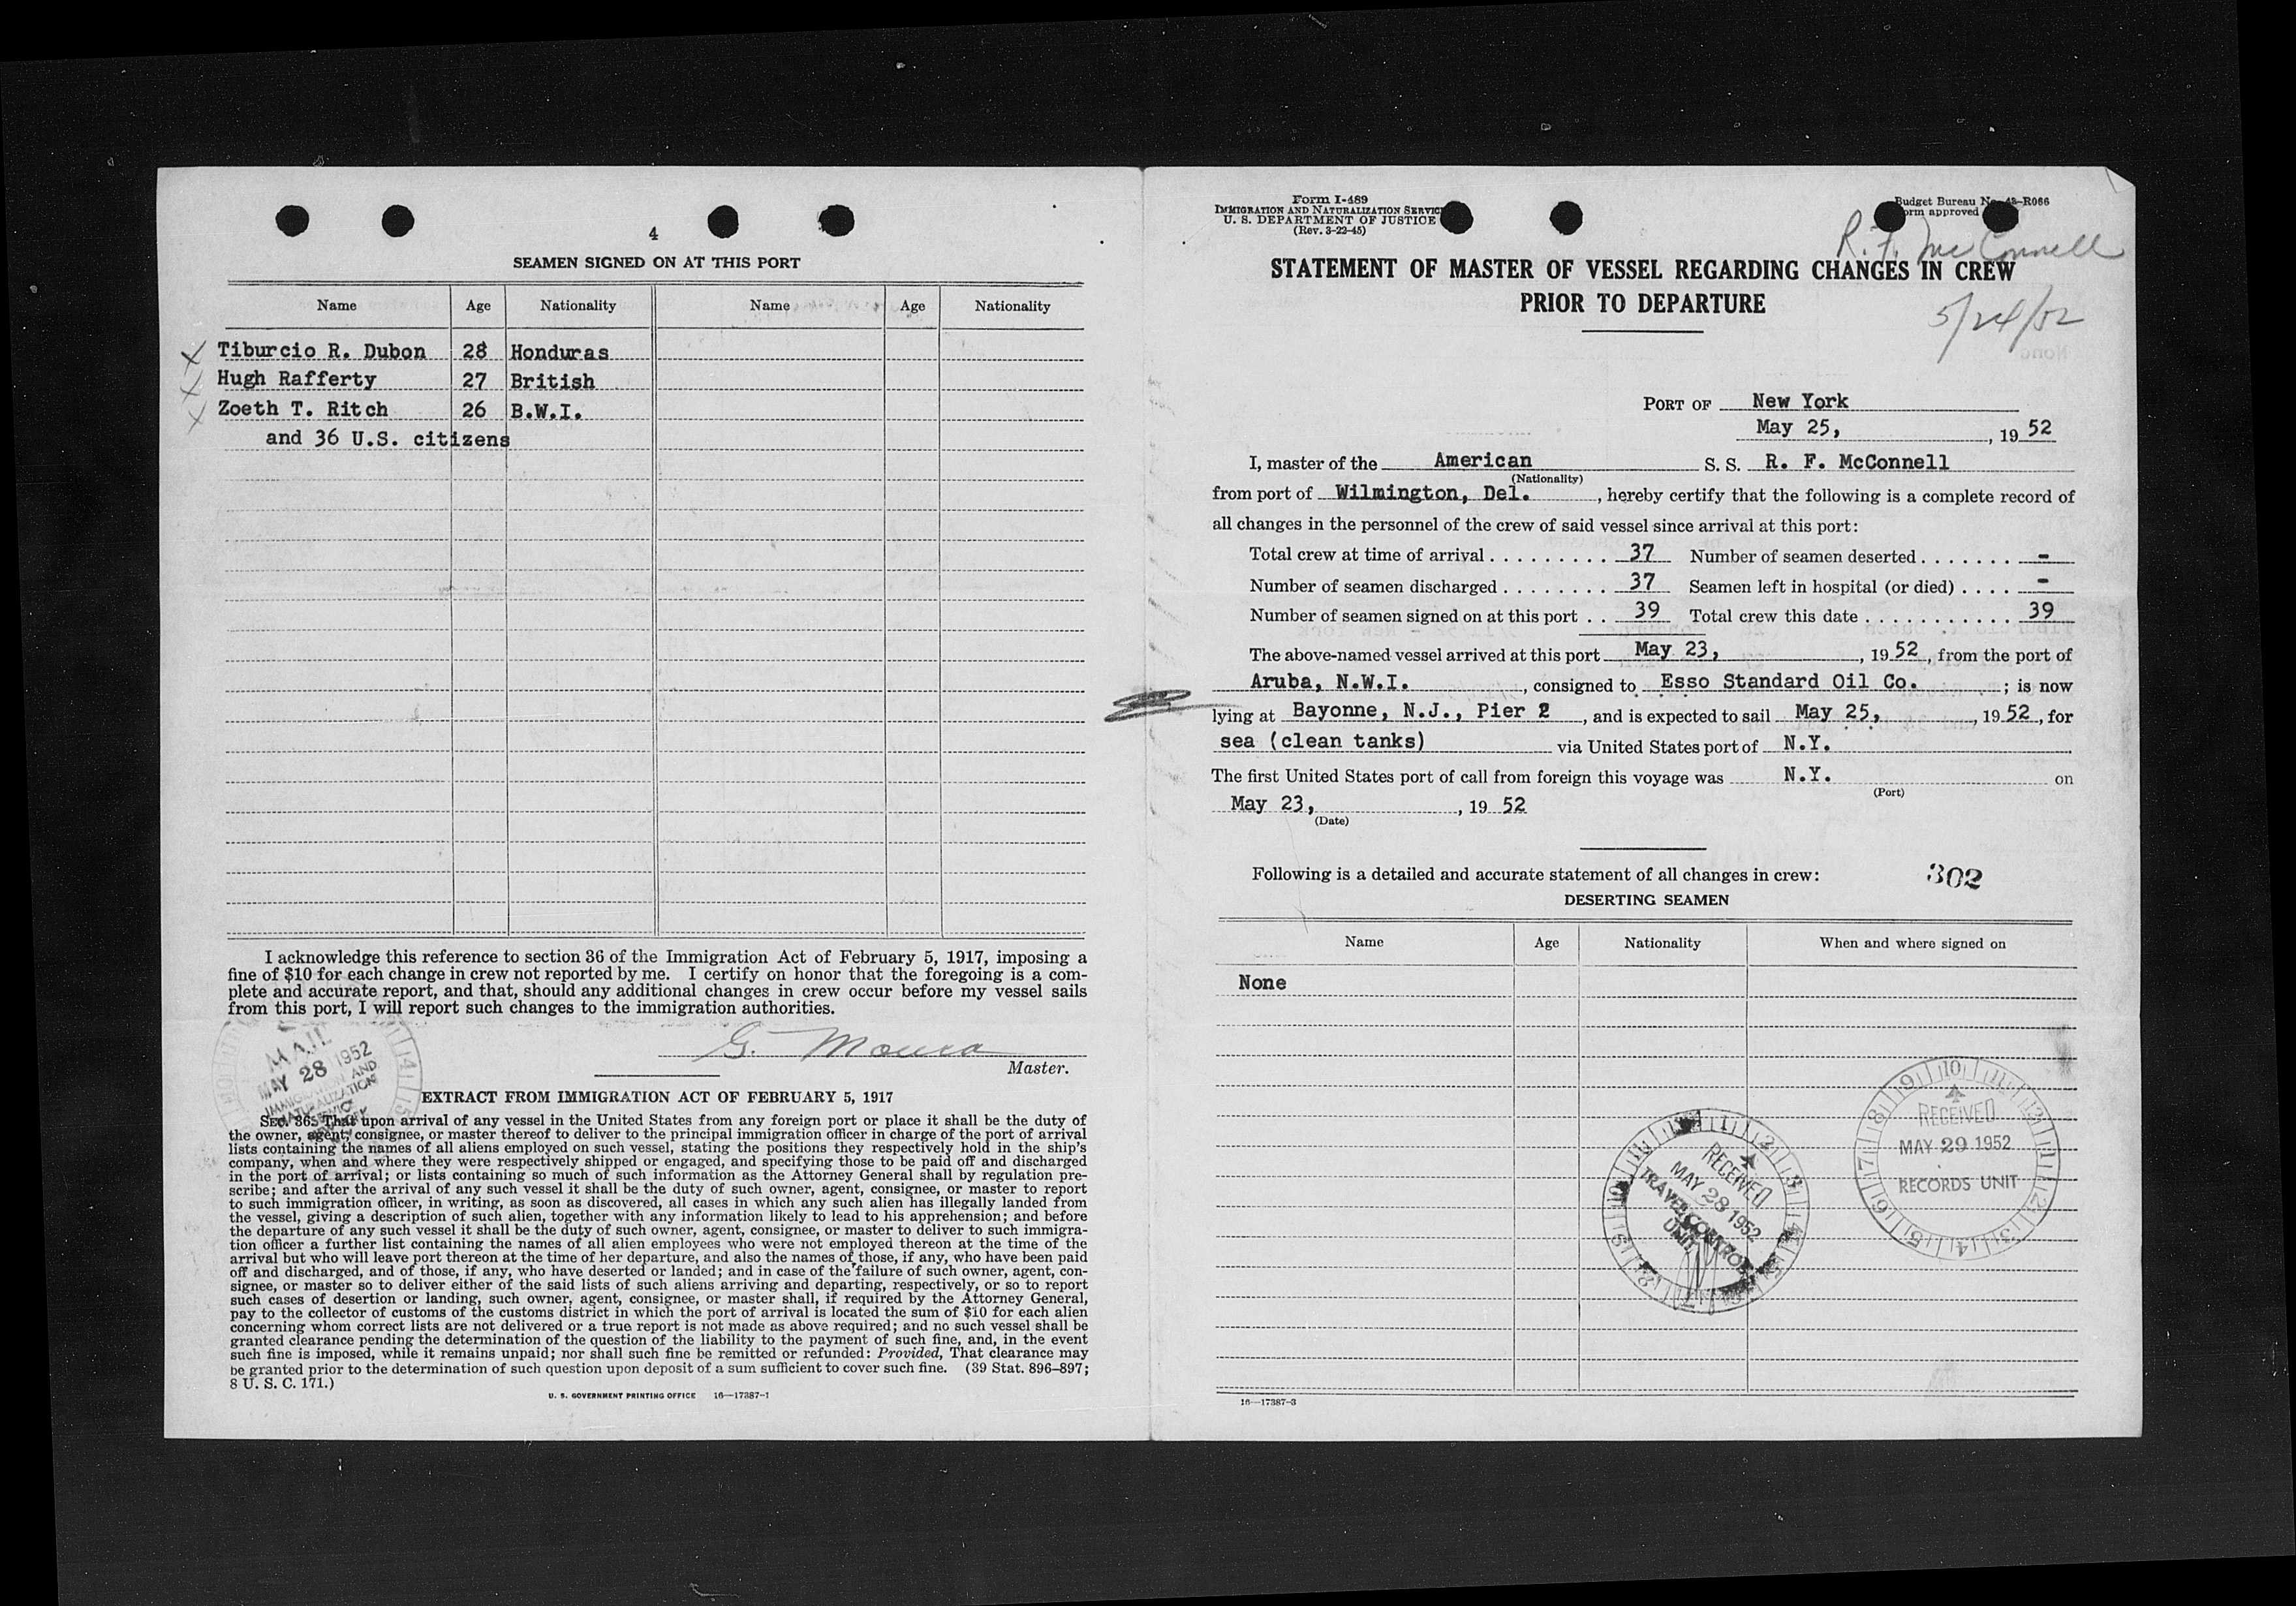 4
SEAMEN SIGNED ON AT THIS PORT
Name Age Nationality Name Age Nationality
Tiburcio R. Dubon 28 Honduras
Hugh Rafferty 27 British
Zoeth T. Ritch 26 B.W.I.
and 36 U.S. citizens
I acknowledge this reference to section 36 of the Immigration Act of February 5, 1917, imposing a
fine of $10 for each change in crew not reported by me. I certify on honor that the foregoing is a com-
plete and accurate report, and that, should any additional changes in crew occur before my vessel sails
from this port, I will report such changes to the immigration authorities.
G.
Master.
MAIL
MAY 28 1952
IMMIGRATION AND
NATURALIZATION
EXTRACT FROM IMMIGRATION ACT OF FEBRUARY 5, 1917
SEC. 36. That upon arrival of any vessel in the United States from any foreign port or place it shall be the duty of
the owner, agent, consignee, or master thereof to deliver to the principal immigration officer in charge of the port of arrival
lists containing the names of all aliens employed on such vessel, stating the positions they respectively hold in the ship's
company, when and where they were respectively shipped or engaged, and specifying those to be paid off and discharged
in the port of arrival; or lists containing so much of such information as the Attorney General shall by regulation pre-
scribe; and after the arrival of any such vessel it shall be the duty of such owner, agent, consignee, or master to report
to such immigration officer, in writing, as soon as discovered, all cases in which any such alien has illegally landed from
the vessel, giving a description of such alien, together with any information likely to lead to his apprehension; and before
the departure of any such vessel it shall be the duty of such owner, agent, consignee, or master to deliver to such immigra-
tion officer a further list containing the names of all alien employees who were not employed thereon at the time of the
arrival but who will leave port thereon at the time of her departure, and also the names of those, if any, who have been paid
off and discharged, and of those, if any, who have deserted or landed; and in case of the failure of such owner, agent, con-
signee, or master so to deliver either of the said lists of such aliens arriving and departing, respectively, or so to report
such cases of desertion or landing, such owner, agent, consignee, or master shall, if required by the Attorney General,
pay to the collector of customs of the customs district in which the port of arrival is located the sum of $10 for each alien
concerning whom correct lists are not delivered or a true report is not made as above required; and no such vessel shall be
granted clearance pending the determination of the question of the liability to the payment of such fine, and, in the event
such fine is imposed, while it remains unpaid; nor shall such fine be remitted or refunded: Provided, That clearance may
be granted prior to the determination of such question upon deposit of a sum sufficient to cover such fine. (39 Stat. 896–897;
8 U. S. C. 171.)
U. S. GOVERNMENT PRINTING OFFICE 16—17387-1
Form I-489
IMMIGRATION AND NATURALIZATION SERVICE
U. S. DEPARTMENT OF JUSTICE
(Rev. 3-22-45)
Budget Bureau No. 43-R066
Form approved
R. F. McConnell
STATEMENT OF MASTER OF VESSEL REGARDING CHANGES IN CREW
PRIOR TO DEPARTURE
5/24/52
PORT OF New York
May 25, , 19 52
I, master of the American S. S. R. F. McConnell
(Nationality)
from port of Wilmington, Del. , hereby certify that the following is a complete record of
all changes in the personnel of the crew of said vessel since arrival at this port:
Total crew at time of arrival . . . . . . . . . . 37 Number of seamen deserted . . . . . . . -
Number of seamen discharged . . . . . . . . 37 Seamen left in hospital (or died) . . . . -
Number of seamen signed on at this port . . 39 Total crew this date . . . . . . . . . . . 39
The above-named vessel arrived at this port May 23, , 19 52 , from the port of
Aruba, N.W.I. , consigned to Esso Standard Oil Co. ; is now
lying at Bayonne, N.J., Pier 2 , and is expected to sail May 25, , 19 52 , for
sea (clean tanks) via United States port of N.Y.
The first United States port of call from foreign this voyage was N.Y. on
(Port)
May 23, , 19 52
(Date)
Following is a detailed and accurate statement of all changes in crew: 302
DESERTING SEAMEN
Name Age Nationality When and where signed on
None
RECEIVED
MAY 28 1952
TRAVEL CONTROL
UNIT
RECEIVED
MAY 29 1952
RECORDS UNIT
16—17387-3